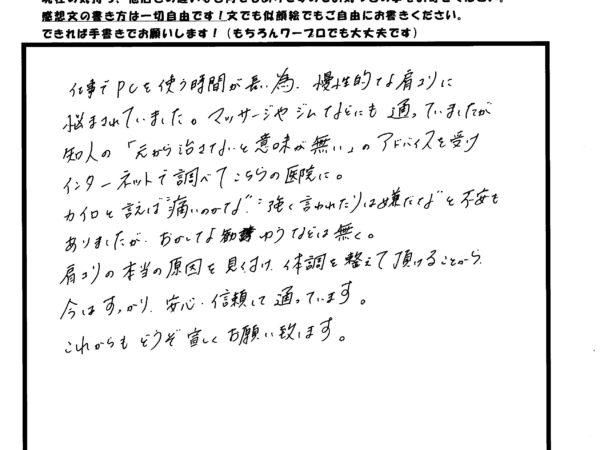 感想文の書き方は一切自由です！文でも似顔絵でもご自由にお書きください。
できれば手書きでお願いします！（もちろんワープロでも大丈夫です）
仕事でPCを使う時間が長い為、慢性的な肩コリに
悩まされていました。マッサージやジムなどにも通っていましたが
知人の「元から治さないと意味が無い」のアドバイスを受け
インターネットで調べてこちらの医院に。
カイロと言えば"痛いのかな""強く言われたりは嫌だな"と不安も
ありましたが、おかしな勧誘ゆうなどは無く。
肩コリの本当の原因を見つけ、体調を整えて頂けることから、
今はすっかり、安心・信頼して通っています。
これからもどうぞ宜しくお願い致します。